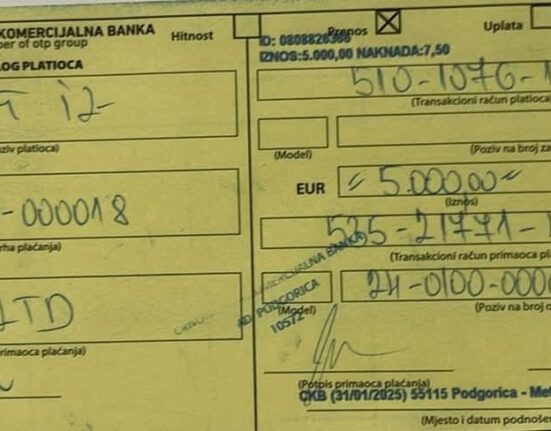 KOMERCIJALNA BANKA
ber of otp group
Hitnost
Prenos
Uplata
ID: 0808828366
IZNOS:5.000,00 NAKNADA:7,50
LOG PLATIOCA
510-1076-1
(Transakcioni račun platioca
12-
ziv platioca)
(Model)
(Poziv na broj za
EUR
" 5.000,00 "
(Iznos)
-000018
rha plaćanja)
535-21771-1
(Transakcioni račun primaoca pla
KOMERCIJALNA BANKA
AD PODGORICA
10572
(Model)
24-0100-0000
(Poziv na broj o
LTD
rimaoca plaćanja)
(Potpis primaoca plaćanja)
CKB (31/01/2025) 55115 Podgorica - Met
(Mjesto i datum podnošen